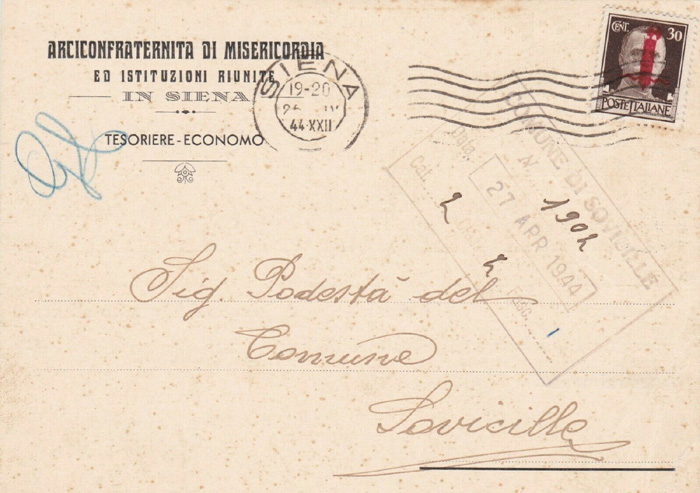 ARCICONFRATERNITA DI MISERICORDIA
ED ISTITUZIONI RIUNITE
IN SIENA
TESORIERE-ECONOMO
SIENA
19-20
IV
44·XXII
CENT. 30
POSTE ITALIANE
COMUNE DI SOVICILLE
N. 1902
Data 27 APR 1944
Cat. 2
Fasc. 1
Sig. Podestà del
Comune
Sovicille